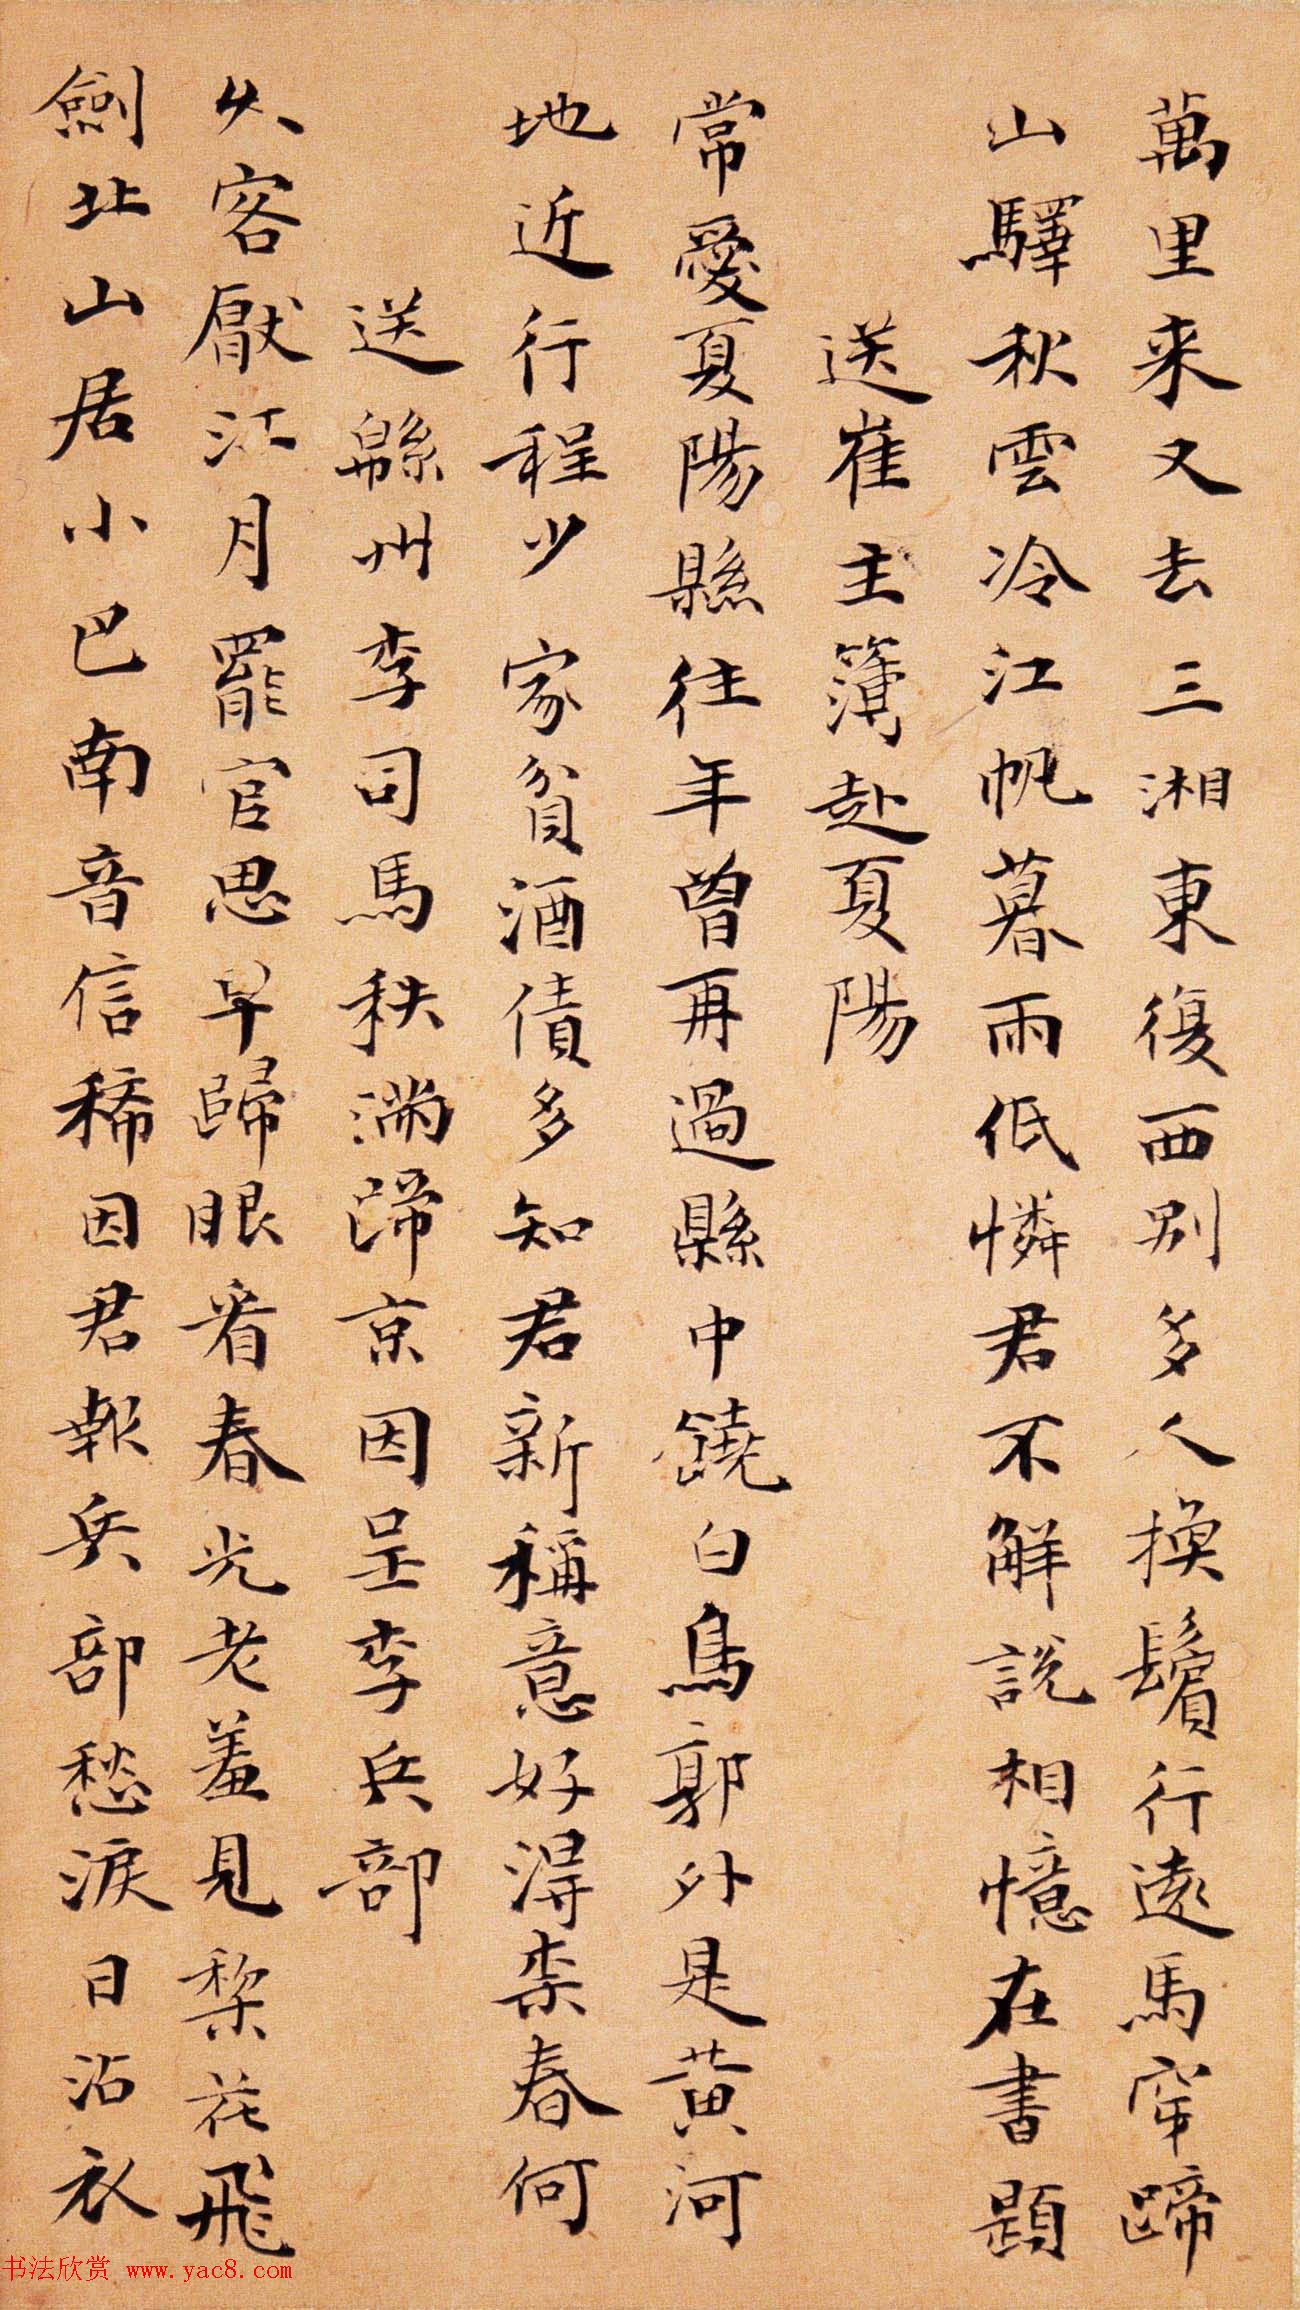 萬里来又去三湘東復西别多人換鬢行遠馬穿蹄
山驛秋雲冷江帆暮雨低憐君不解說相憶在書題
送崔主簿赴夏陽
常愛夏陽縣往年曾再過縣中饒白鳥郭外是黄河
地近行程少家貧酒債多知君新稱意好得柰春何
送緜州李司馬秩滿歸京因呈李兵部
久客厭江月罷官思早歸眼看春光老羞見梨花飛
劍北山居小巴南音信稀因君報兵部愁淚日沾衣
书法欣赏 www.yac8.com